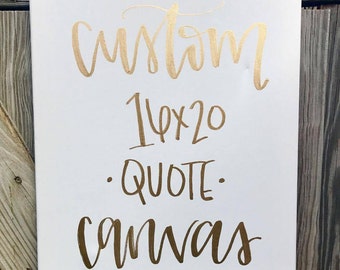 custom
16x20
·QUOTE·
canvas